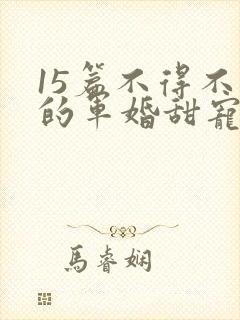 15篇不得不
的军婚甜寵
馬睿娴